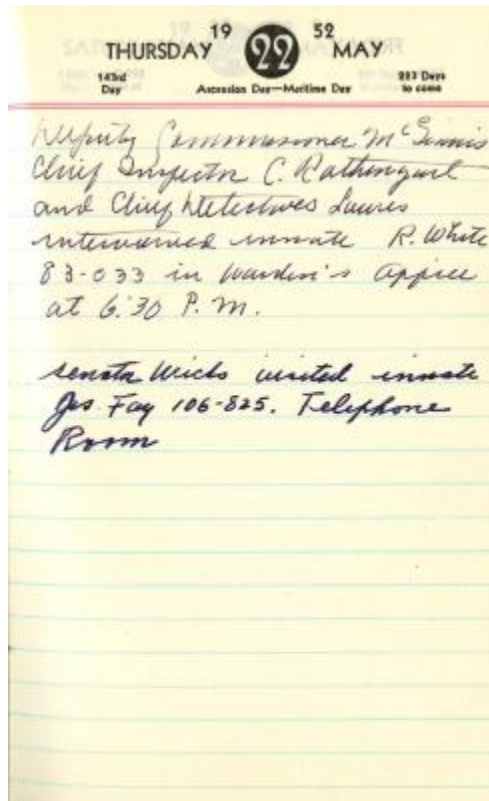 THURSDAY 19 22 52 MAY
143rd Day Ascension Day—Maritime Day 223 Days to come
Deputy Commissioner McGinnis
Chief Inspector C.
and Chief Detectives
interviewed inmate R. White
83-033 in Warden's Appice
at 6:30 P.M.
Senator Wicks visited inmate
Jos. Fay 106-825. Telephone
Room